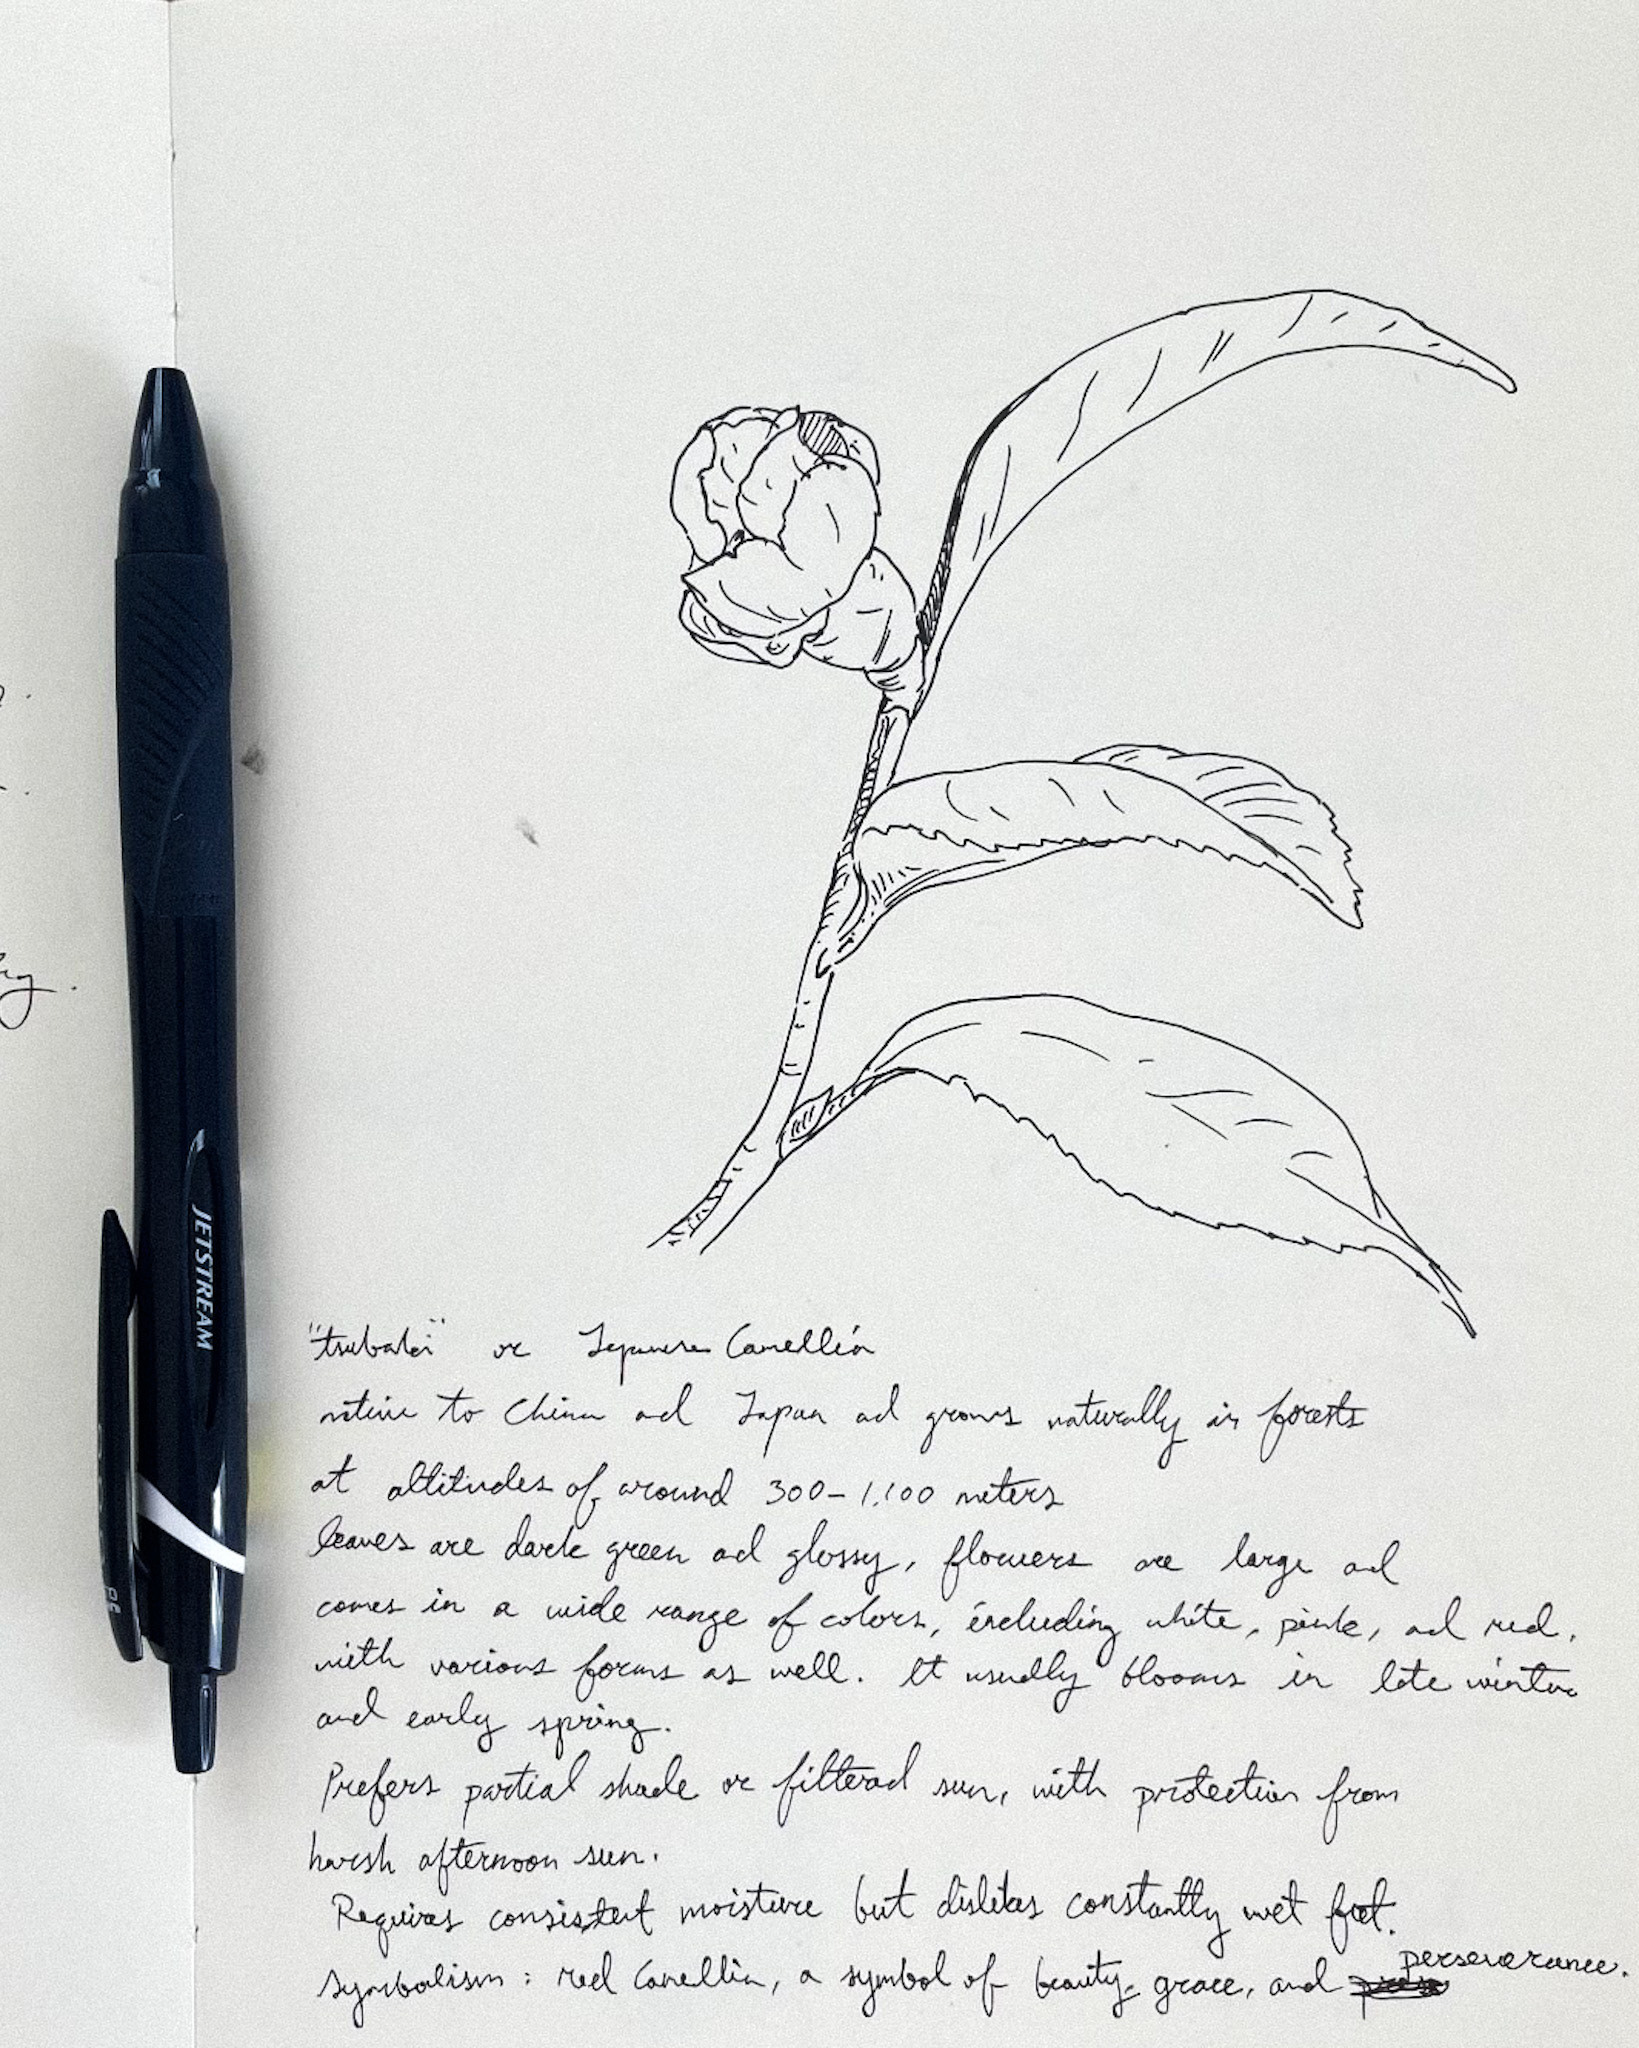 "tsubaki" or Japanese Camellia
native to China and Japan and grows naturally in forests
at altitudes of around 300-1,100 meters
leaves are dark green and glossy, flowers are large and
comes in a wide range of colors, including white, pink, and red,
with various forms as well. It usually blooms in late winter
and early spring.
Prefers partial shade or filterad sun, with protection from
harsh afternoon sun.
Requires consistent moisture but dislikes constantly wet feet.
Symbolism: red Camellia, a symbol of beauty, grace, and perseverance.
JETSTREAM